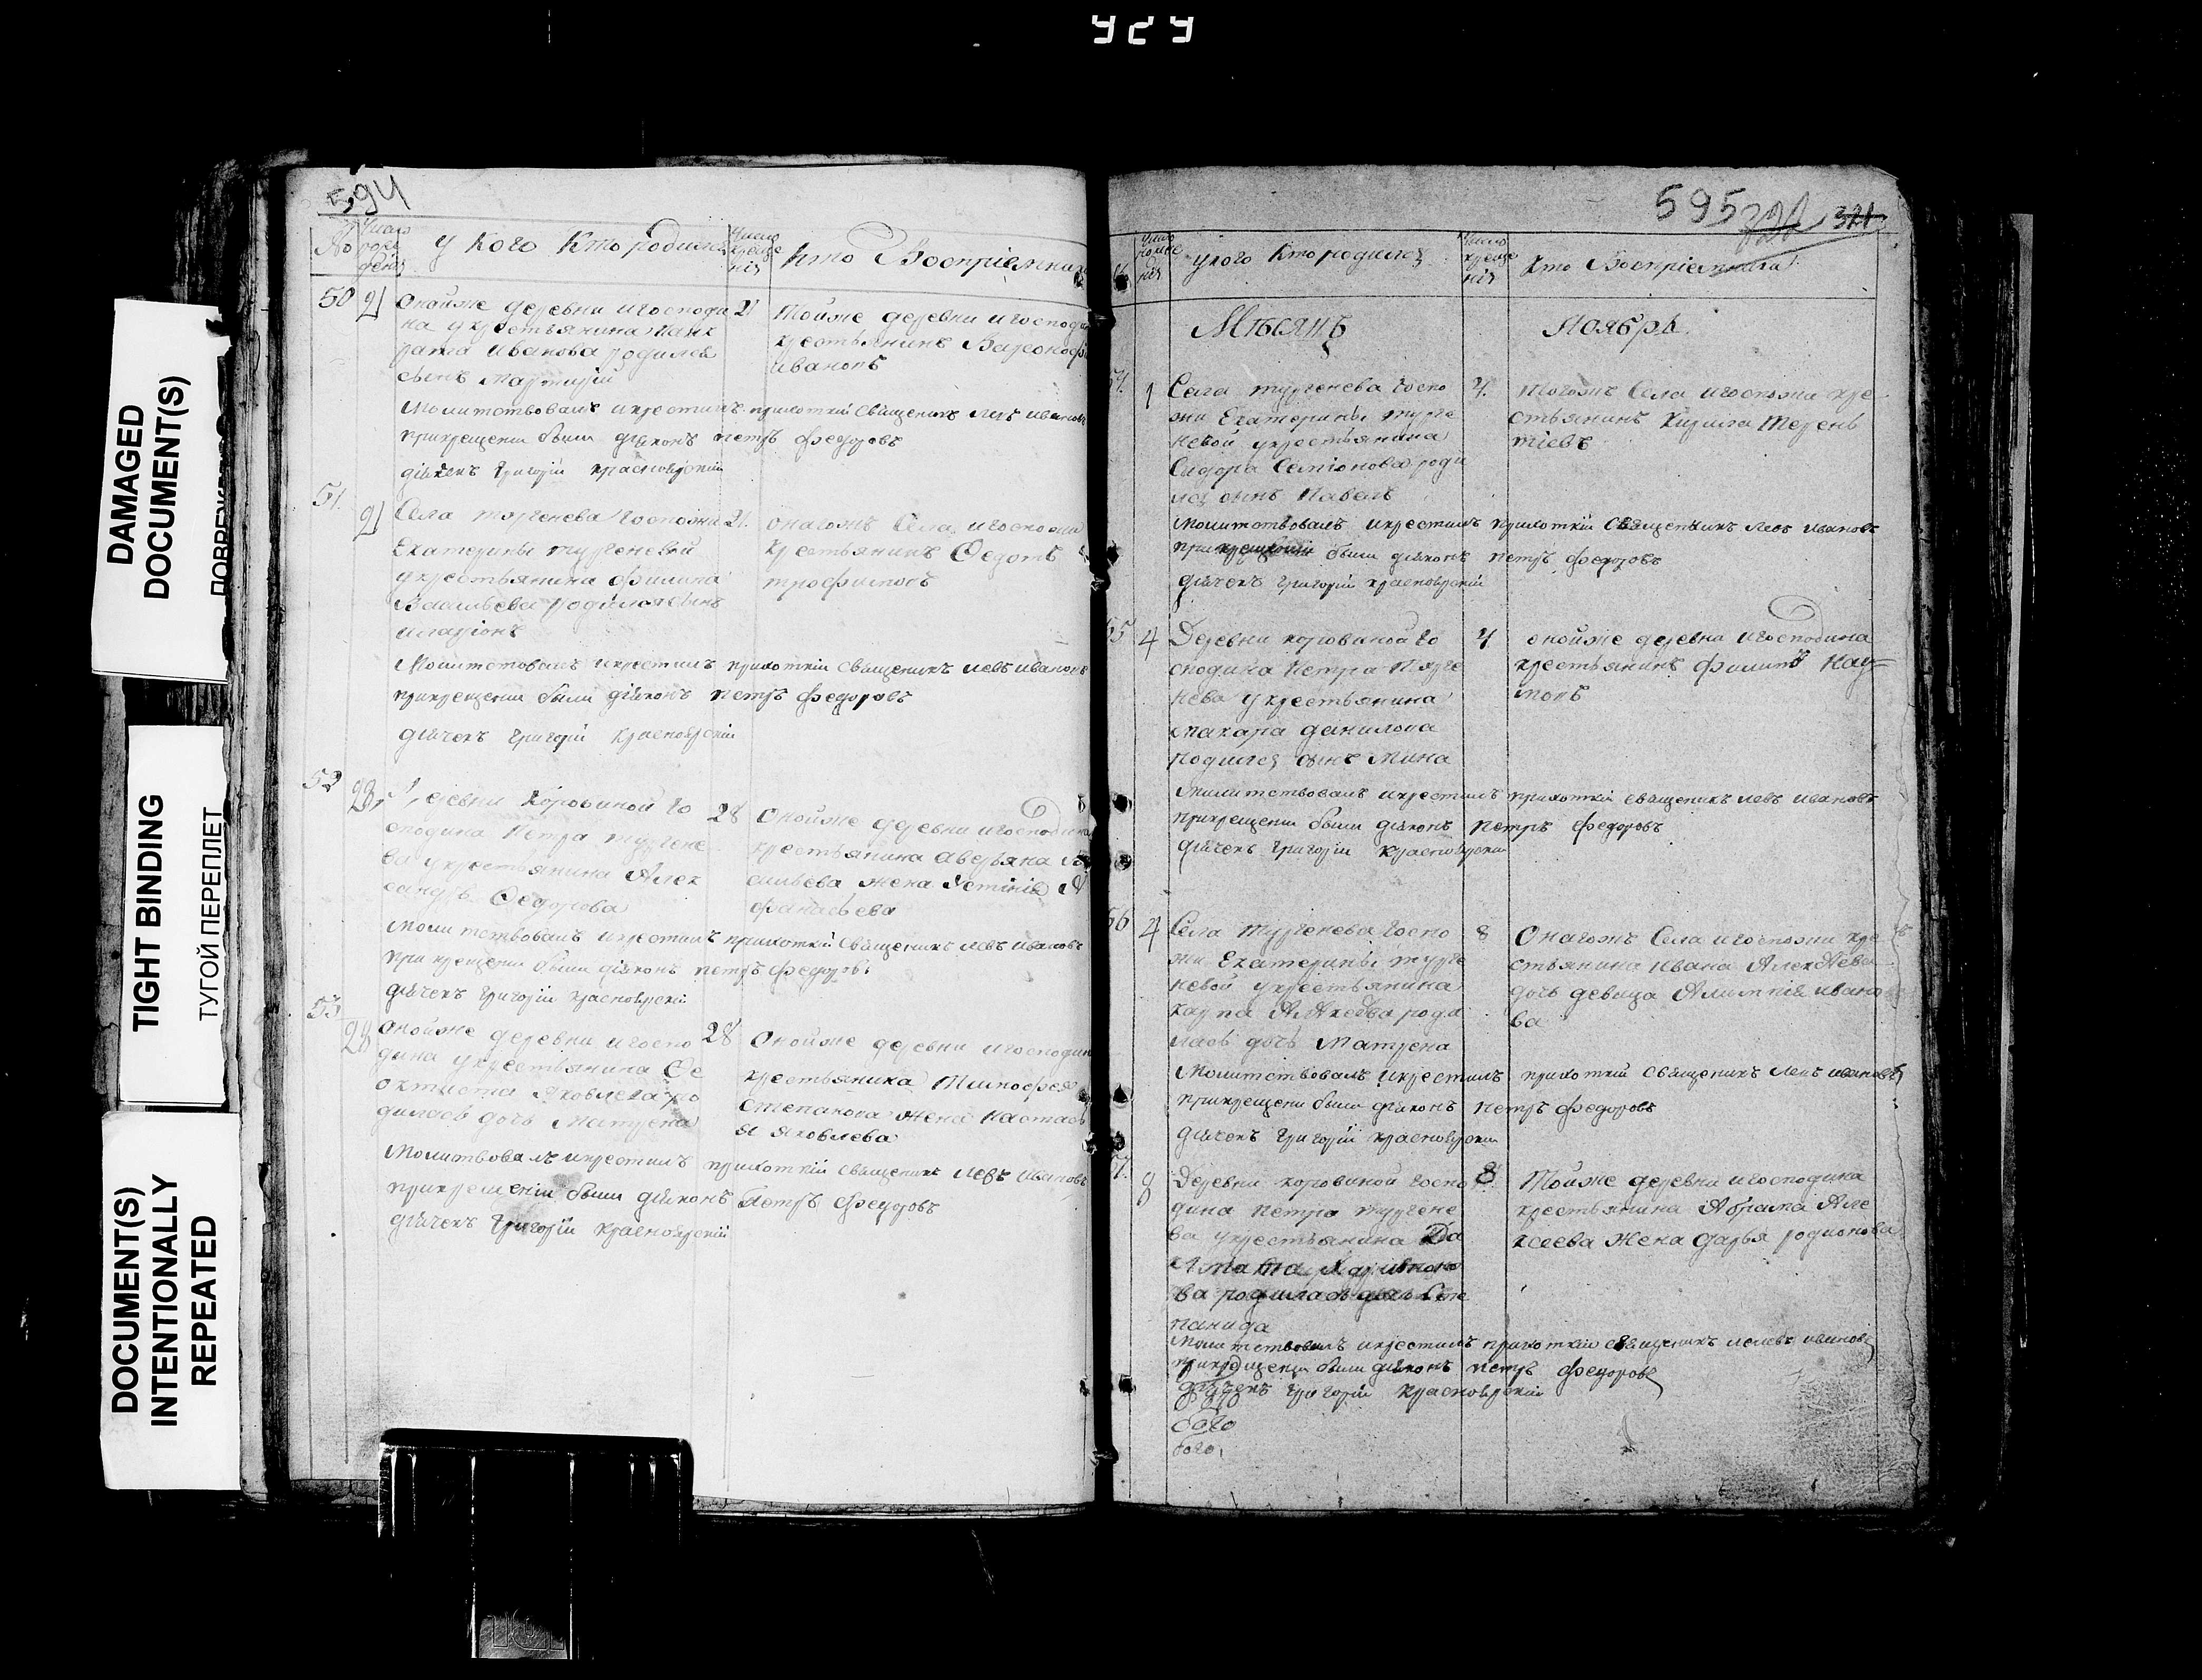 929
DAMAGED
DOCUMENT(S)
TIGHT BINDING
ТУГОЙ ПЕРЕПЛЕТ
DOCUMENT(S)
INTENTIONALLY
REPEATED
594
No
Число
рож
дения
у кого кто родился
Число
креще
нія
кто Восприемники
50
21
Оной же деревни и господи
на у крестьянина Панк
рата Иванова родился
сынъ
21
Той же деревни и господи
крестьянинъ
Ивановъ
Молитствовалъ и крестилъ прихоткій Священикъ Левъ Ивановъ
при крещени были діяконъ Петръ Федоровъ
діячекъ Григорій Красноярскій
51.
21
Села Тургенева Госпожи
Екатерины Тургеневой
у крестьянина Филипа
Васильева родился сынъ
Иларіонъ
21.
онагожъ Села и госпожи
крестьянинъ Федотъ
Трофимовъ
Молитствовалъ и крестилъ прихоткій Священикъ Левъ Ивановъ
при крещени были діяконъ Петръ Федоровъ
діячекъ Григорій Красноярскій
52
Деревни Коровиной го
сподина Петра Тургене
ва у крестьянина Алек
сандръ Федорова
28
Оной же деревни и господина
крестьянина Аверьяна
сильева жена Устинія А
фанасьева
Молитствовалъ и крестилъ прихоткій Священикъ Левъ Ивановъ
при крещени были діяконъ Петръ Федоровъ
діячекъ Григорій Красноярскій
53
28
Оной же деревни и госпо
дина у крестьянина Фе
октиста Яковлева ро
дилась дочь Матрена
28
Оной же деревни и господин
крестьянина Тимофея
Степанова жена Настась
я Яковлева
Молитвовалъ и крестилъ прихоткій Священикъ Левъ Ивановъ
при крещеніи были діяконъ Петръ Федоровъ
діячекъ Григорій Красноярскій
595
321
у кого кто родился
Число
креще
нія
Кто Восприемники
Мѣсяцъ Ноябрь
54.
1
Села Тургенева Госпо
жи Екатерины Турге
невой у крестьянина
Сидора Семіонова роди
лся сынъ Павелъ
4.
Тогожъ Села и госпожи кре
стьянинъ Кирила Терень
тіевъ
Молитствовалъ и крестилъ прихоткій Священикъ Левъ Ивановъ
при крещеніи были діяконъ Петръ Федоровъ
діячекъ Григорій Красноярскій
55
4
Деревни Коровиной го
сподина Петра Турге
нева у крестьянина
Макара Данилова
родился сынъ Мина
4
оной же деревни и господина
крестьянинъ Филипъ Нау
мовъ
Молитствовалъ и крестилъ прихоткій Священикъ Левъ Ивановъ
при крещени были діяконъ Петръ Федоровъ
діячекъ Григорій Красноярскій
56
4
Села Тургенева Госпо
жи Екатерины Турге
невой у крестьянина
Карпа Алкеева роди
лась дочь Матрена
8
Онагожъ Села и госпожи кре
стьянина Ивана
дочь девица Алимпія Ивано
ва
Молитствовалъ и крестилъ прихоткій Священикъ Левъ Ивановъ
при крещени были діяконъ Петръ Федоровъ
діячекъ Григорій Красноярскій
57.
8
Деревни Коровиной Госпо
дина Петра Тургене
ва у крестьянина
ва родилась дочь Сте
панида
8
Той же деревни и господина
крестьянина Абрама Але
ксеева жена Дарья Родионова
Молитствовалъ и крестилъ прихоткій Священикъ Ивановъ
при крещени были діяконъ Петръ Федоровъ
діячекъ Григорій Красноярскій